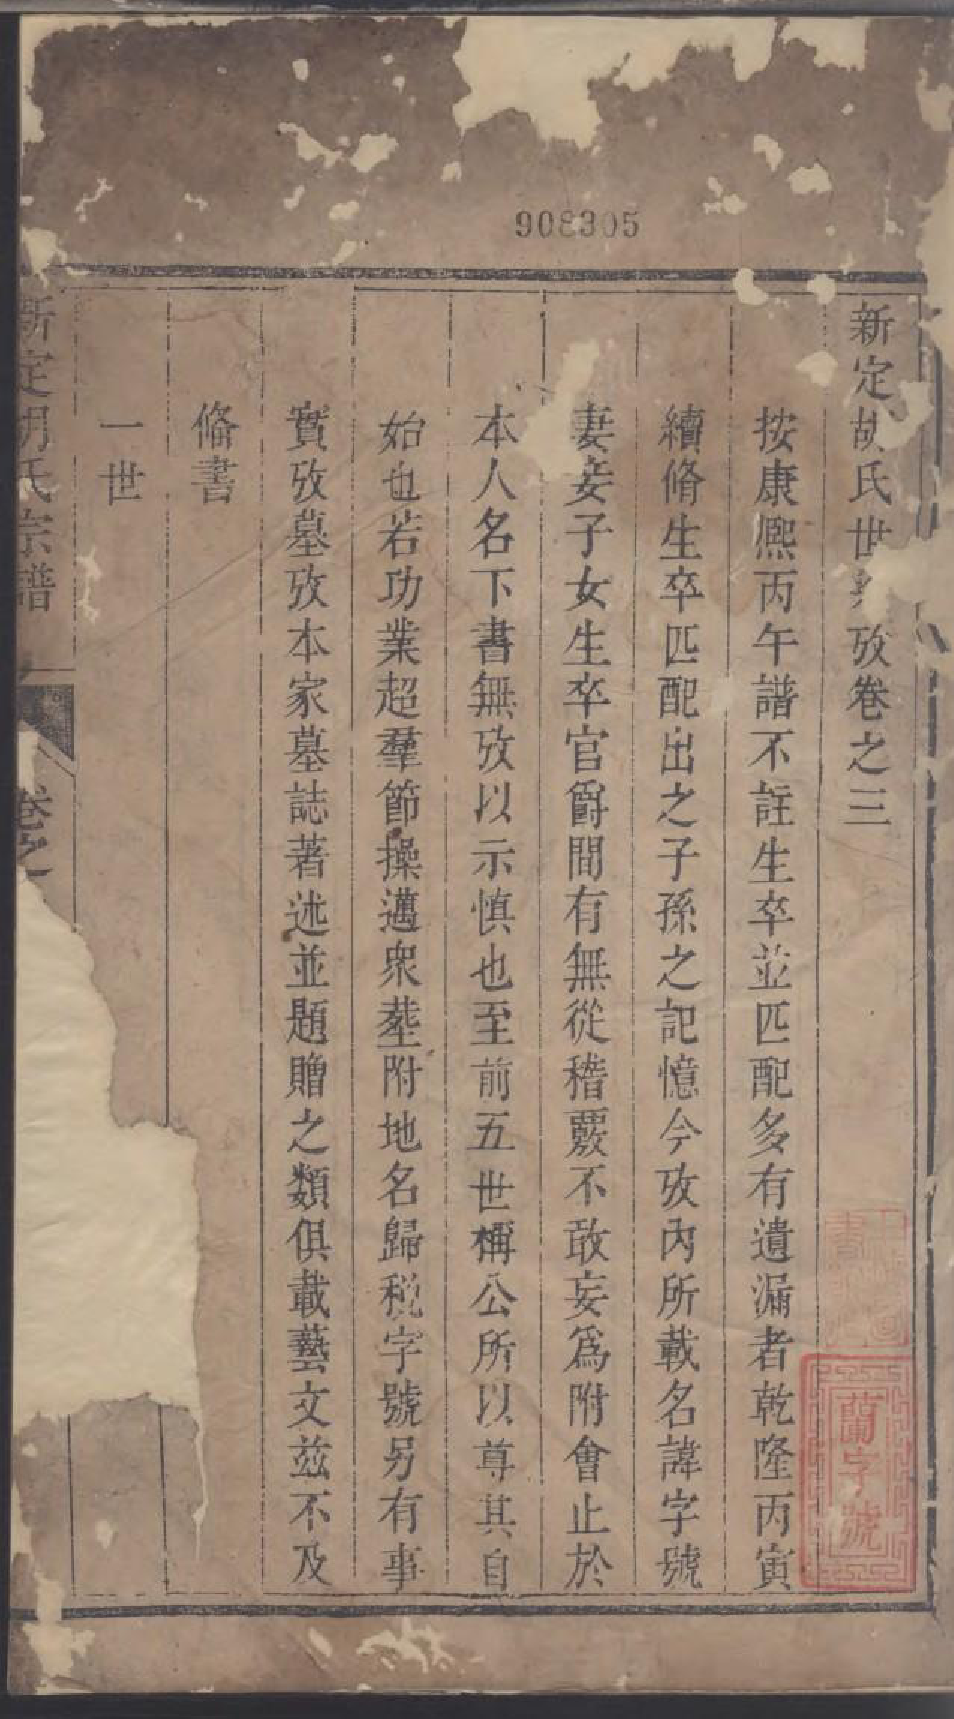 908305
新定胡氏世攷卷之三
按康熈丙午譜不註生卒並匹配多有遺漏者乾隆丙寅
續脩生卒匹配出之子孫之記憶今攷內所載名諱字號
妻妾子女生卒官爵間有無從稽覈不敢妄爲附會止於
本人名下書無攷以示慎也至前五世稱公所以尊其自
始也若功業超羣節操邁衆塟附地名歸税字號另有事
實攷墓攷本家墓誌著述並題贈之類俱載藝文兹不及
脩書
一世
新定胡氏宗譜
卷之
蘭字號